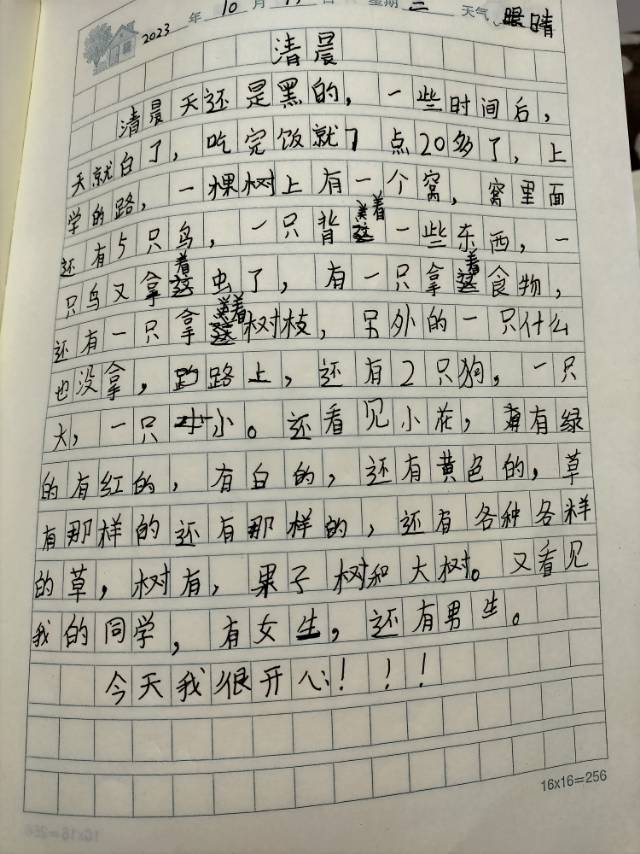 2023 年 10 月 星期 二 天气 眼睛
清晨
清晨天还是黑的，一些时间后，
天就白了，吃完饭就7点20多了，上
学的路，一棵树上有一个窝，窝里面
还有5只鸟，一只背着一些东西，一
只鸟又拿着虫了，有一只拿着食物，
还有一只拿着树枝，另外的一只什么
也没拿，路上，还有2只狗，一只
大，一只小。还看见小花，有绿
的有红的，有白的，还有黄色的，草
有那样的还有那样的，还有各种各样
的草，树有，果子树和大树。又看见
我的同学，有女生，还有男生。
今天我很开心！！！
16x16=256